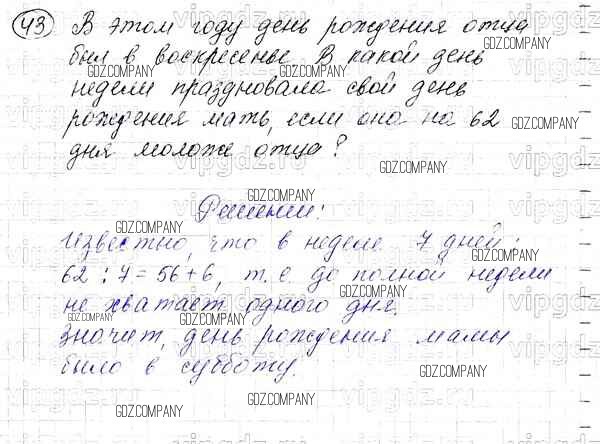 43 В этом году день рождения отца
был в воскресенье В какой день
недели праздновала свой день
рождения мать, если она на 62
дня моложе отца?
Решении:
Известно, что в неделе 7 дней:
62 : 7 = 56 + 6, т. е. до полной недели
не хватает одного дня.
Значит, день рождения мамы
было в субботу.